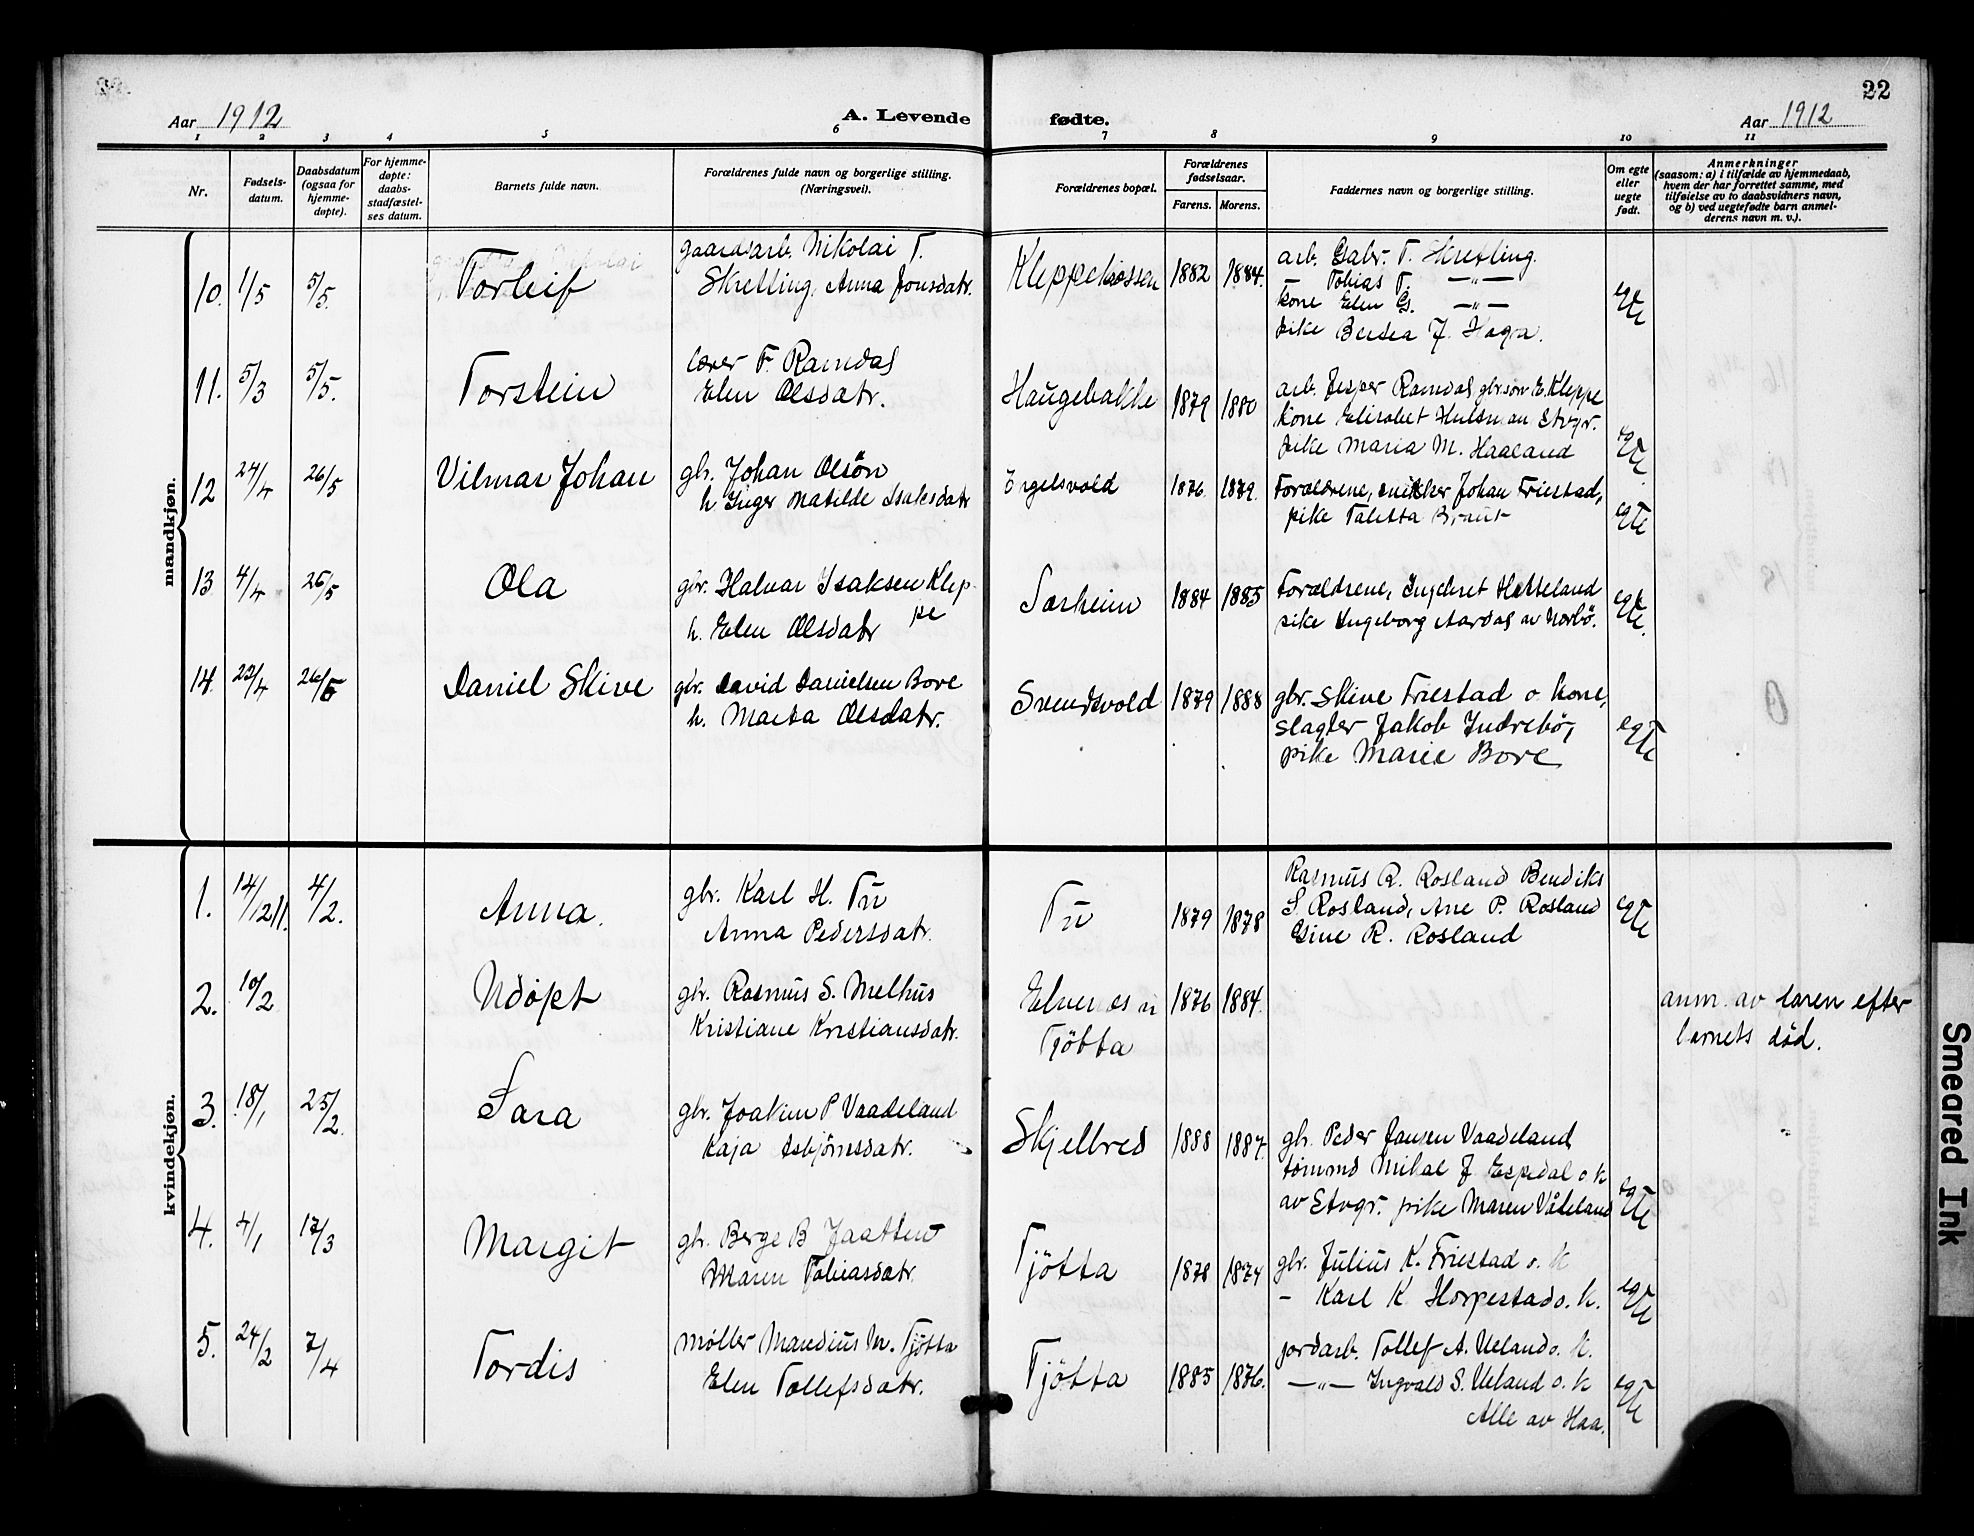 22
Aar 1912
A. Levende fødte.
Aar 1912
1 2 3 4 5 6 7 8 9 10 11
Nr.
Fødsels-
datum.
Daabsdatum
(ogsaa for
hjemme-
døpte).
For hjemme-
døpte:
daabs-
stadfæstel-
ses datum.
Barnets fulde navn.
Forældrenes fulde navn og borgerlige stilling.
(Næringsvei).
Forældrenes bopæl.
Forældrenes
fødselsaar.
Farens. Morens.
Faddernes navn og borgerlige stilling.
Om egte
eller
uegte
født.
Anmerkninger
(saasom: a) i tilfælde av hjemmedaab,
hvem der har forrettet samme, med
tilføielse av to daabsvidners navn,
og b) ved uegtefødte barn anmel-
derens navn m. v.).
mandkjøn.
10. 1/5 5/5. Torleif
gaardarb. Nikolai T.
Skretting, Anna Jonsdatr.
Kleppekrossen 1882 1884.
arb. Gabr. T. Skretting.
— Tobias T. —"—
kone Elen G. —"—
pike Berta J. Hogra.
egte
11. 5/3 5/5. Torstein
lærer F. Ramdal
Elen Olsdatr.
Haugebakke 1879 1880
arb. Jesper Ramdal gbr.søn E. Kleppe
kone Elisabet Hulsman Stvgr.
pike Maria M. Haaland
egte
12 24/4 26/5 Vilmar Johan
gbr. Johan Olsön
h Inger Matilde Isaksdatr
Engelsvold 1876. 1879.
Forældrene, snikker Johan Friestad,
pike Taletta Braut
egte
13 4/4 26/5 Ola
gbr. Halvar Isaksen Klep-
pe
h. Elen Olsdatr
Særheim 1884 1885
Forældrene, Ingebret Hetteland
pike Ingeborg Aardal av Norbö.
egte.
14. 22/4 26/5 Daniel Skive
gbr. David Danielsen Bore
h. Marta Olsdatr.
Svendsvold 1879 1888
gbr. Skive Friestad o kone,
slagter Jakob Indrebö,
pike Marie Bore
egte
kvindekjøn.
1. 14/12 11. 4/2. Anna.
gbr. Karl H. Tu
Anna Pedersdatr.
Tu 1879 1878
Rasmus R. Rosland Bendiks
S Rosland, Ane P. Rosland
Gine R. Rosland
egte
2. 10/2 Udöpt
gbr. Rasmus S. Melhus
Kristiane Kristiansdatr.
Tjötta
1876 1884.
anm. av faren efter
barnets död.
3. 18/1 25/2. Sara
gbr. Joakim P Vaadeland
Kaja Asbjörnsdatr.
Skjelbred 1888 1887.
gbr. Peder Jansen Vaadeland
tömmd Mikal J Espedal o. k
av Stvgr. pike Maren Vådeland
egte
4. 4/1 17/3 Margit
gbr. Berge B Jaatten
Maren Tobiasdatr.
Tjötta 1878 1874
gbr. Julius K. Friestad o. k
- Karl K Horpestad o. k.
egte
5. 24/2 7/4 Tordis
Møller Mandius M. Tjötta
Elen Tollefsdatr.
Tjötta 1885 1876.
jordarb. Tollef A. Ueland o. k.
—"— Ingvald S. Ueland o. k
Alle av Haa.
egte
Smeared Ink